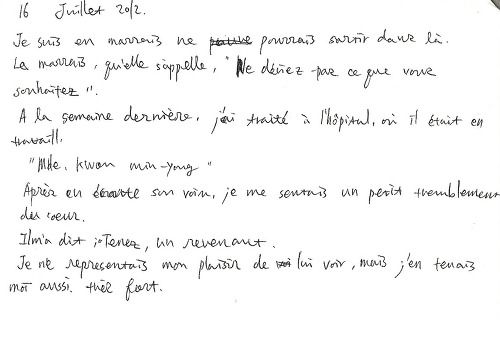 16 Juillet 2012.
Je suis en marrais ne pourrais sortir dans là.
Le marrais, qu'elle s'appelle, "Ne désirez-pas ce que vous
souhaitez".
A la semaine dernière, j'ai traité à l'hôpital, où il était en
travaill.
"Mlle. kwon min-yong"
Après en écouté son voix, je me sentais un petit tremblement
du coeur.
Il m'a dit : Tenez, un revenant.
Je ne représentais mon plaisir de lui voir, mais j'en tenais
moi aussi. très fort.